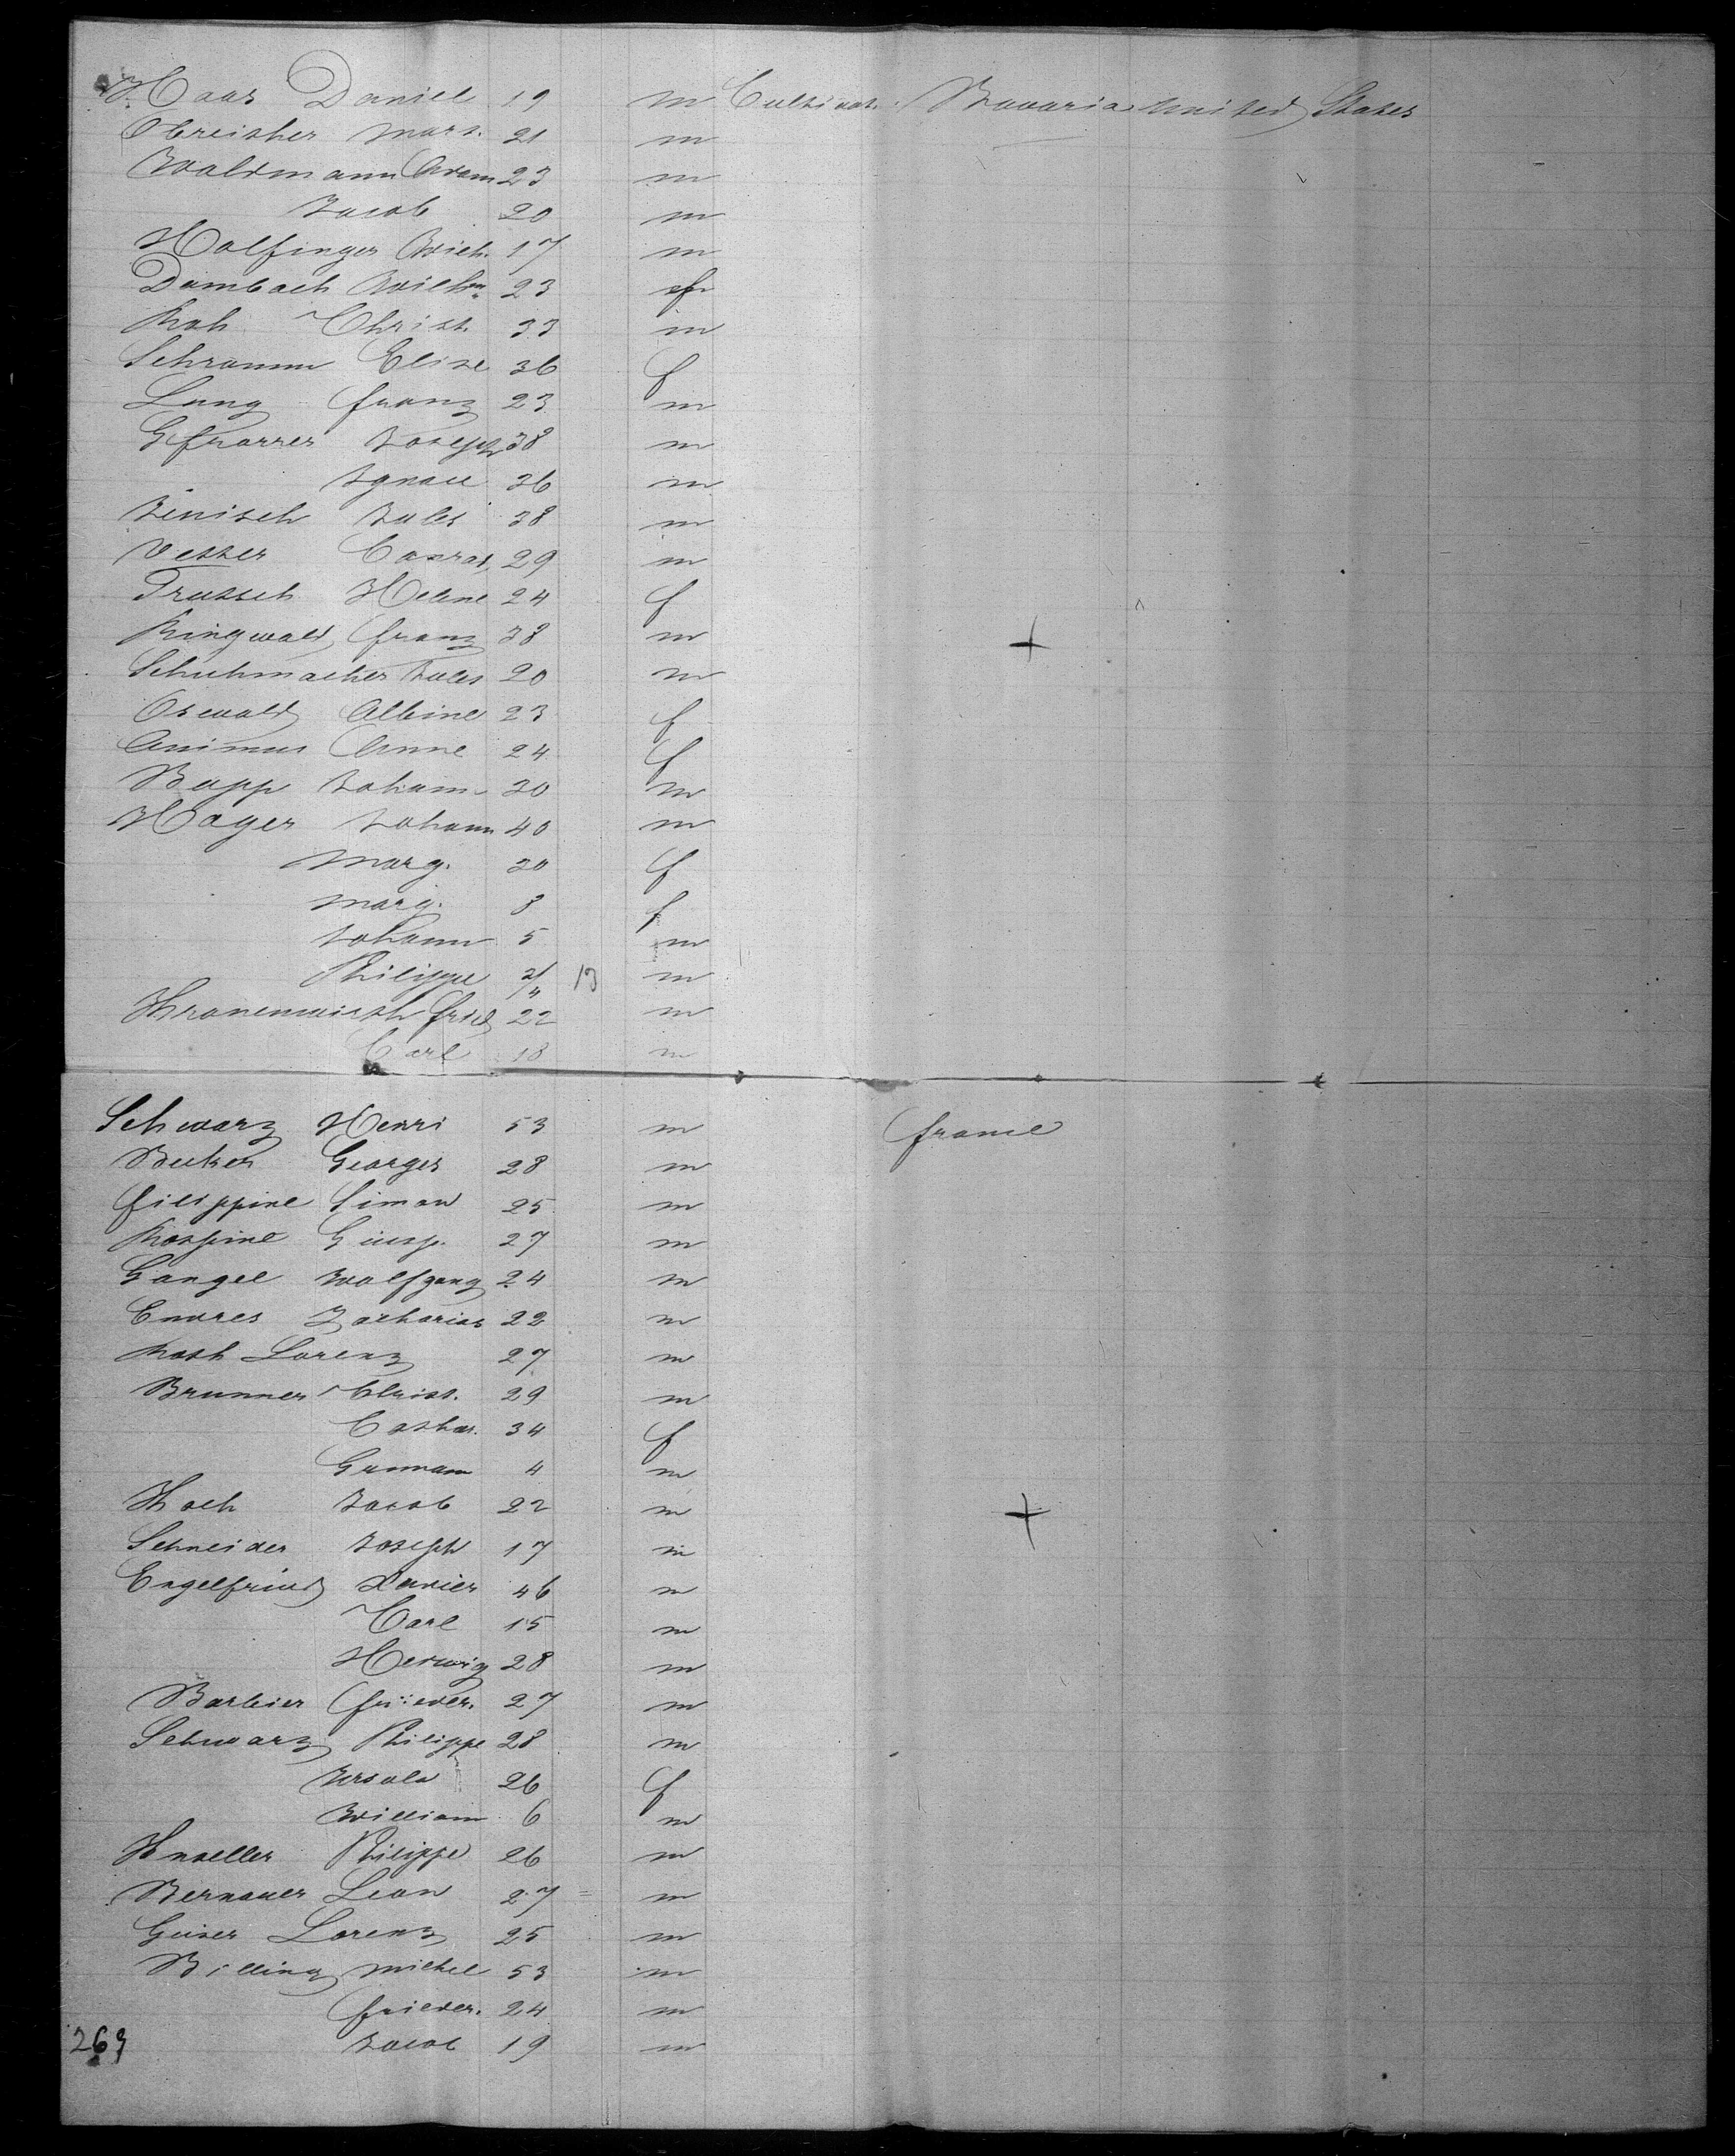 Haas Daniel 19 m Cultivat. Bavaria United States
Obreisher Mart. 21 m
Waldmann Adam 23 m
Jacob 20 m
Holfinger Wilh. 17 m
Dambach Wilhm 23 f
Roh Christ. 33 m
Schramm Elise 36 f
Lang Franz 23 m
Gfrorrer Joseph 38 m
Ignace 36 m
Jenisch Jules 38 m
Vetter Conrad 29 m
Trutsch Helene 24 f
Ringwald Franz 38 m
Schuhmacher Jules 20 m
Oswald Albine 23 f
Animus Anne 24 f
Bapp Johann 30 m
Hager Johann 40 m
Marg. 30 f
Marg. 8 f
Johann 5 m
Philippe 2/4 13 m
Kronenwirth Fried 22 m
Carl 18 m
Schwarz Henri 53 m France
Becker Georges 28 m
Filippine Simon 25 m
Rospine Giusp. 27 m
Gangel Wolfgang 24 m
Endres Zacharias 22 m
Roth Lorenz 27 m
Brunner Christ. 29 m
Cathar. 34 f
Germann 4 m
Koch Jacob 22 m
Schneider Joseph 17 m
Engelfried Xavier 46 m
Carl 15 m
Hedwig 28 m
Barbier Frieder. 27 m
Schwarz Philippe 28 m
Ursula 26 f
William 6 m
Knoeller Philippe 26 m
Bernauer Leon 27 = m
Geiser Lorenz 25 m
Billing Michel 53 m
Frieder. 24 m
269 Jacob 19 m